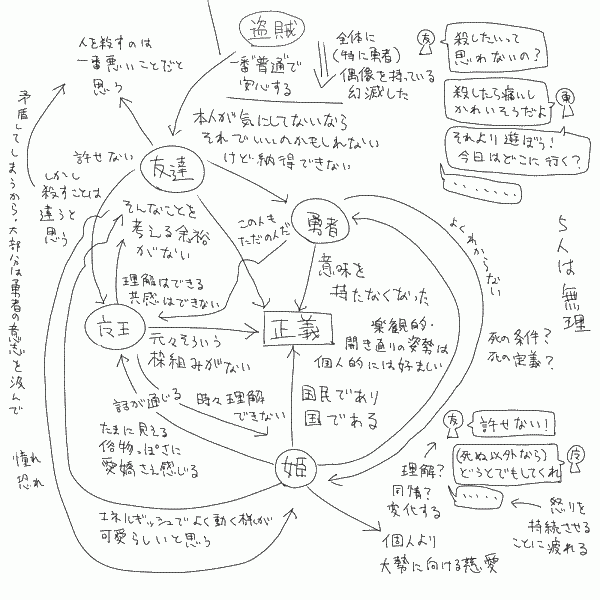 盗賊
人を殺すのは
一番悪いことだと
思う
一番普通で
安心する
全体に
(特に勇者)
偶像を持っている
幻滅した
友
殺したいって
思わないの?
勇
殺したら痛いし
かわいそうだよ
それより遊ぼう!
今日はどこに行く?
・・・・・・・
本人が気にしてないなら
それでいいのかもしれない
けど納得できない
矛盾してしまうから、大部分は勇者の意志を汲んで
許せない
友達
しかし
殺すことは
違うと
思う
そんなことを
考える余裕
がない
この人も
ただの人だ
勇者
よくわからない
5人は無理
理解はできる
共感はできない
意味を
持たなくなった
元々そういう
枠組みがない
正義
楽観的・
開き直りの姿勢は
個人的には好ましい
死の条件?
死の定義?
話が通じる
時々理解
できない
国民であり
国である
たまに見える
俗物っぽさに
愛嬌さえ感じる
姫
憧れ
恐れ
エネルギッシュでよく動く様が
可愛らしいと思う
理解?
同情?
変化する
個人より
大勢に向ける慈愛
友
許せない!
(死ぬ以外なら)
どうとでもしてくれ
・・・・・
怒りを
持続させる
ことに疲れる